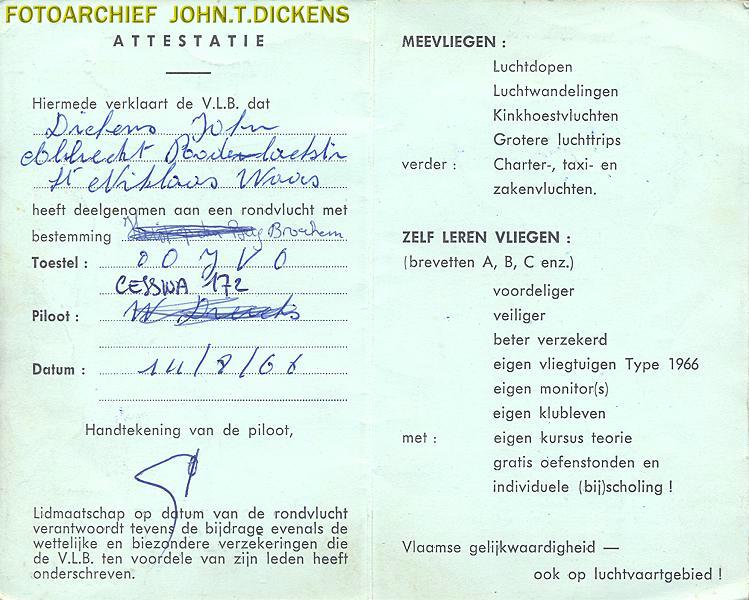 FOTOARCHIEF JOHN.T.DICKENS
ATTESTATIE
Hiermede verklaart de V.L.B. dat
Dickens John
Albrecht
St Niklaas Waas
heeft deelgenomen aan een rondvlucht met
bestemming Broechem
Toestel : OO JVO
CESSNA 172
Piloot :
Datum : 14/8/66
Handtekening van de piloot,
Lidmaatschap op datum van de rondvlucht
verantwoordt tevens de bijdrage evenals de
wettelijke en biezondere verzekeringen die
de V.L.B. ten voordele van zijn leden heeft
onderschreven.
MEEVLIEGEN :
Luchtdopen
Luchtwandelingen
Kinkhoestvluchten
Grotere luchttrips
verder : Charter-, taxi- en
zakenvluchten.
ZELF LEREN VLIEGEN :
(brevetten A, B, C enz.)
voordeliger
veiliger
beter verzekerd
eigen vliegtuigen Type 1966
eigen monitor(s)
eigen klubleven
met : eigen kursus teorie
gratis oefenstonden en
individuele (bij)scholing !
Vlaamse gelijkwaardigheid —
ook op luchtvaartgebied !